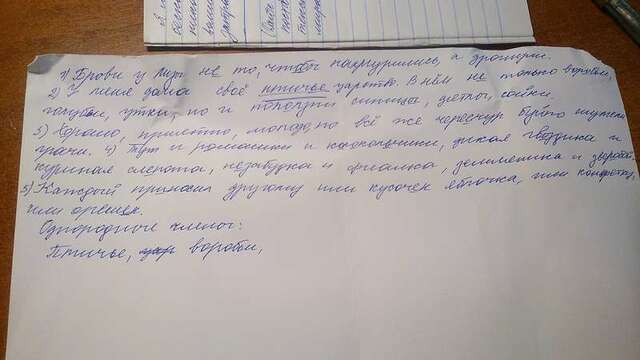 1) Брови у него не то, чтобы нахмурились, а дрогнули.
2) У меня дома своё птичье царство. В нём не только воробьи,
голуби, утки, но и поползни синица, дятлы, сойки.
3) Хорошо, приятно, молодо, но всё же чересчур буйно шумели
грачи. 4) Тут и ромашки и колокольчики, дикая гвоздика и
куриная слепота, незабудка и фиалка, земляника и зверобой
5) Каждый приносил другому или кусочек яблочка, или конфетку,
или орешек.
Однородные члены:
Птичье, воробьи,